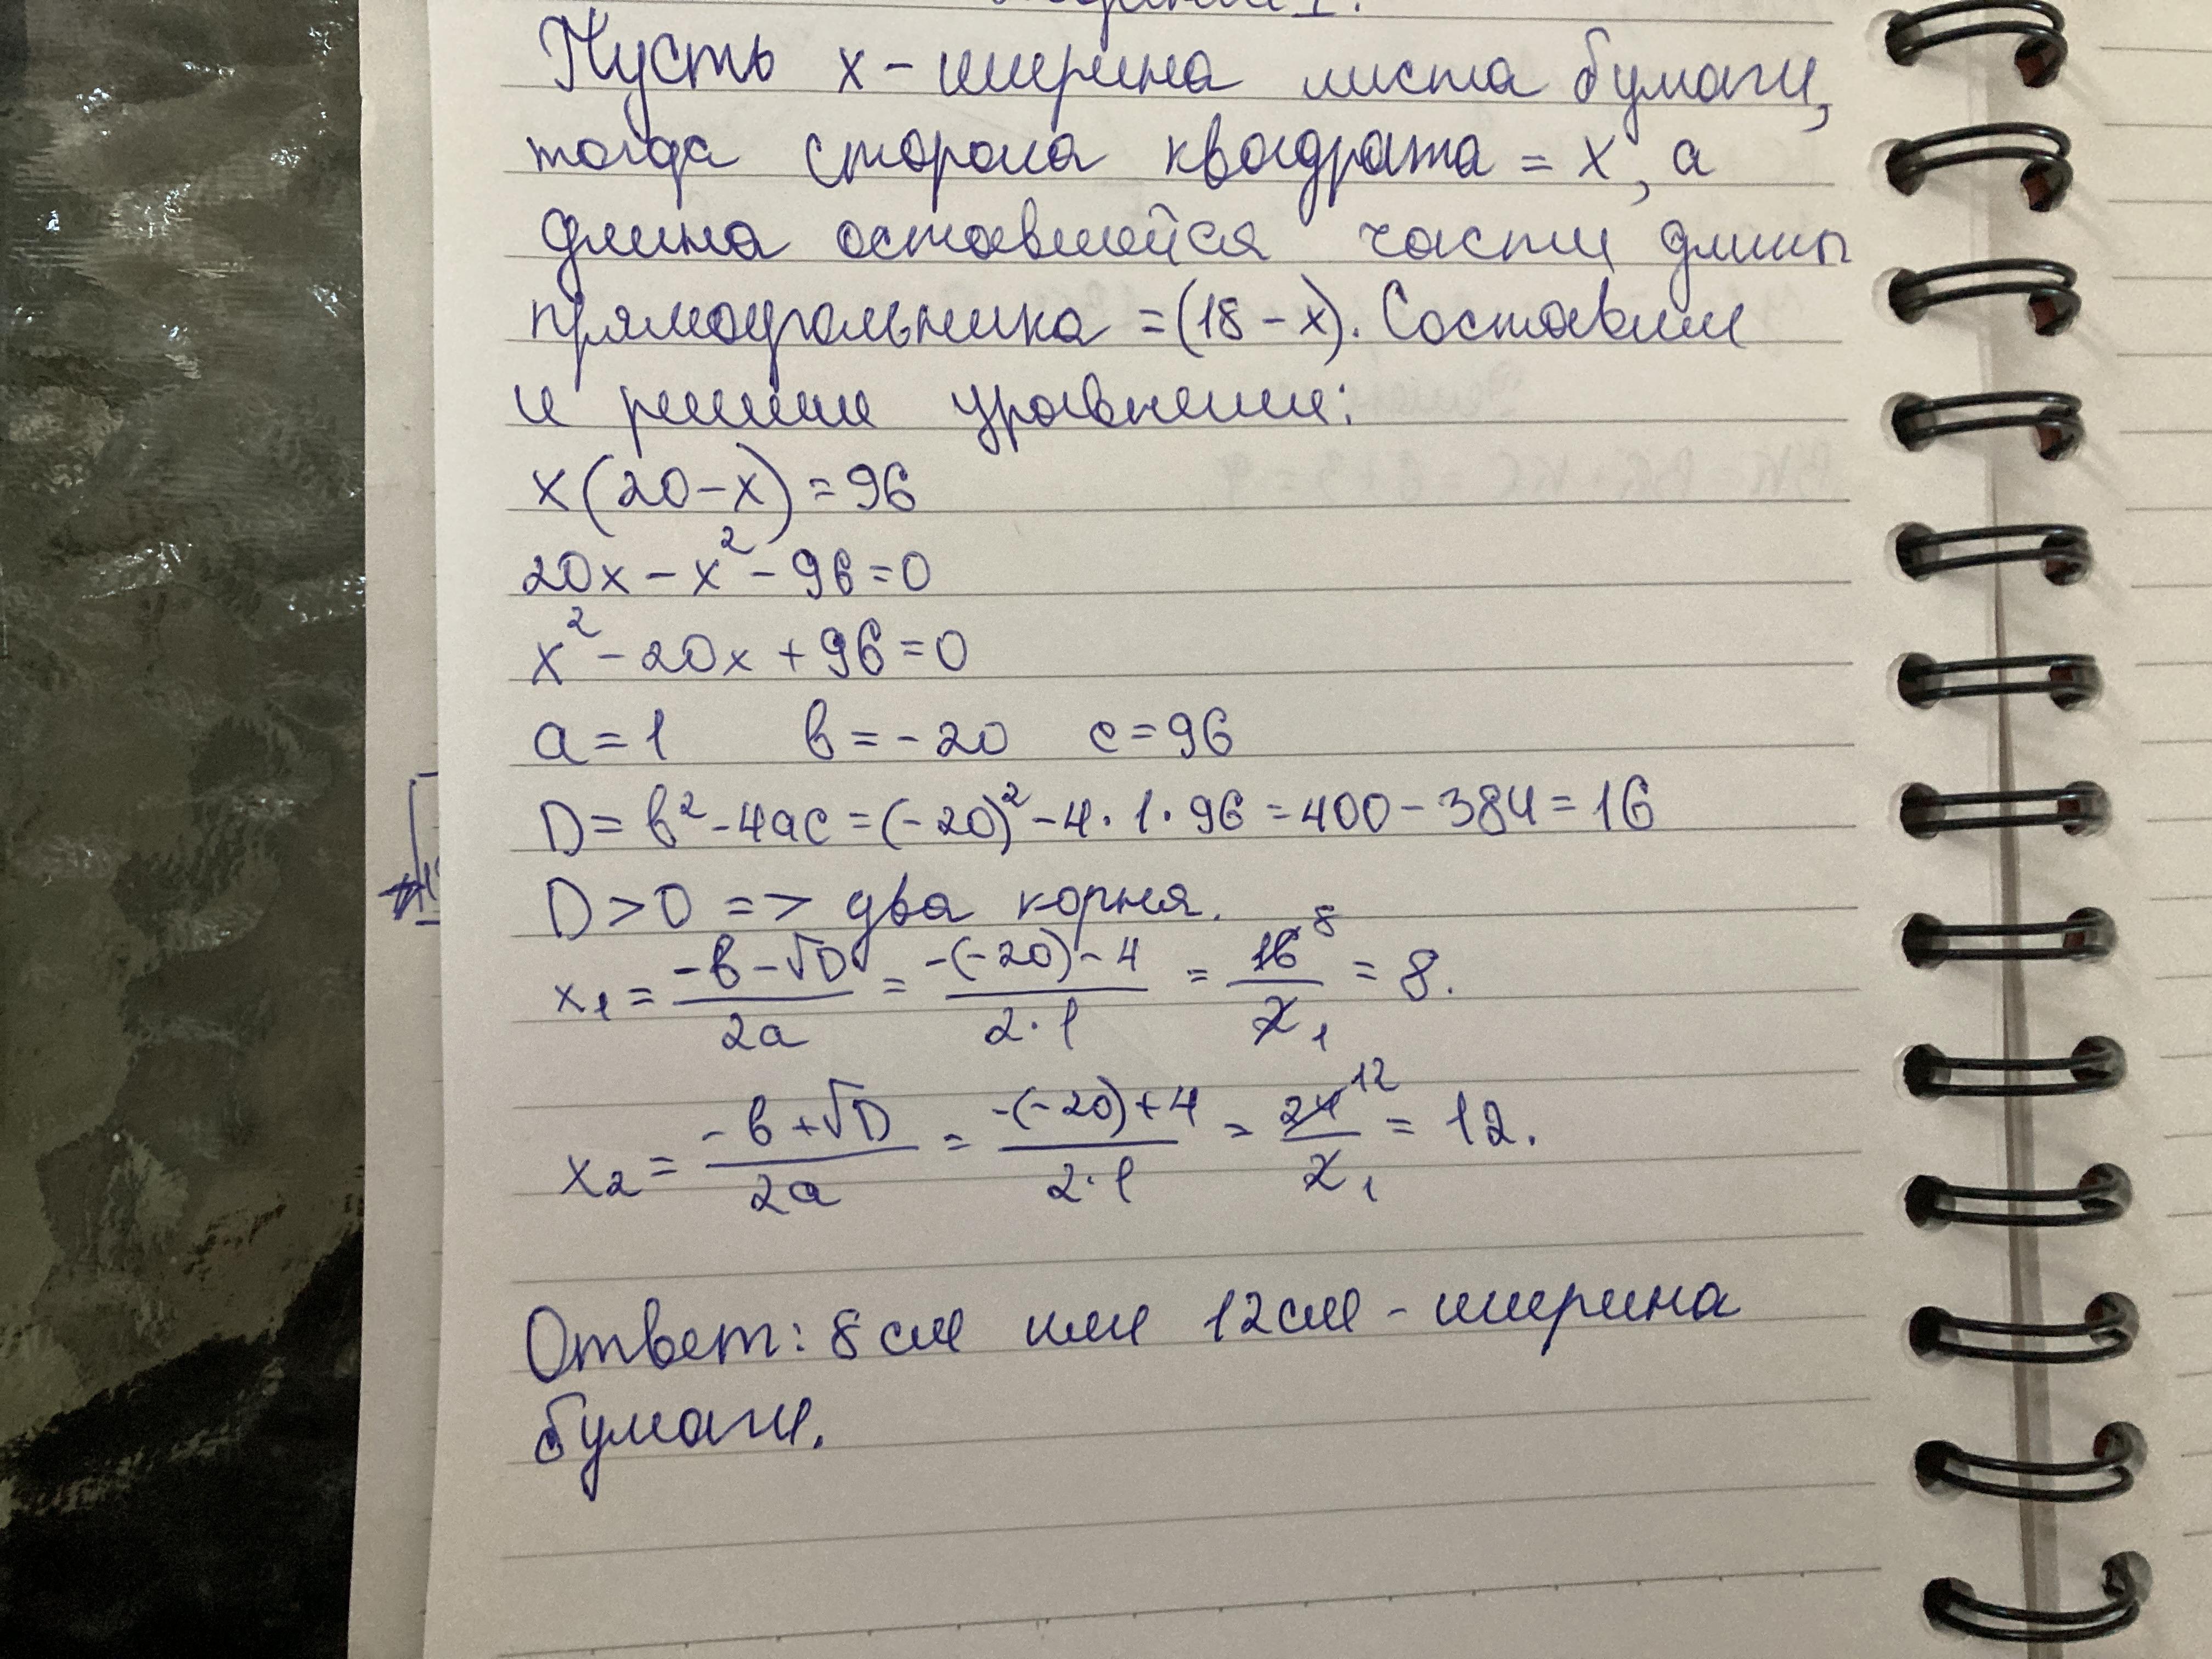 Пусть x - ширина листа бумаги,
тогда сторона квадрата = x, а
длина оставшейся части длины
прямоугольника = (18 - x). Составим
и решим уравнение:
x(20-x) = 96
20x - x² - 96 = 0
x² - 20x + 96 = 0
a = 1 в = -20 c = 96
D = в² - 4ac = (-20)² - 4 · 1 · 96 = 400 - 384 = 16
D > 0 => два корня.
x₁ = (-в - √D)/(2a) = (-(-20) - 4)/(2 · 1) = 16⁸/2₁ = 8.
x₂ = (-в + √D)/(2a) = (-(-20) + 4)/(2 · 1) = 24¹²/2₁ = 12.
Ответ: 8 см или 12 см - ширина
бумаги.